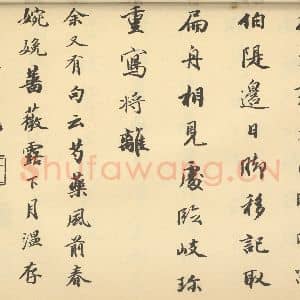 伯隄邊日腳移記取
扁舟相見處臨岐珎
重寫将離
余又有句云芍藥風前春
婉娩薔薇露下月温存
Shufawang.CN